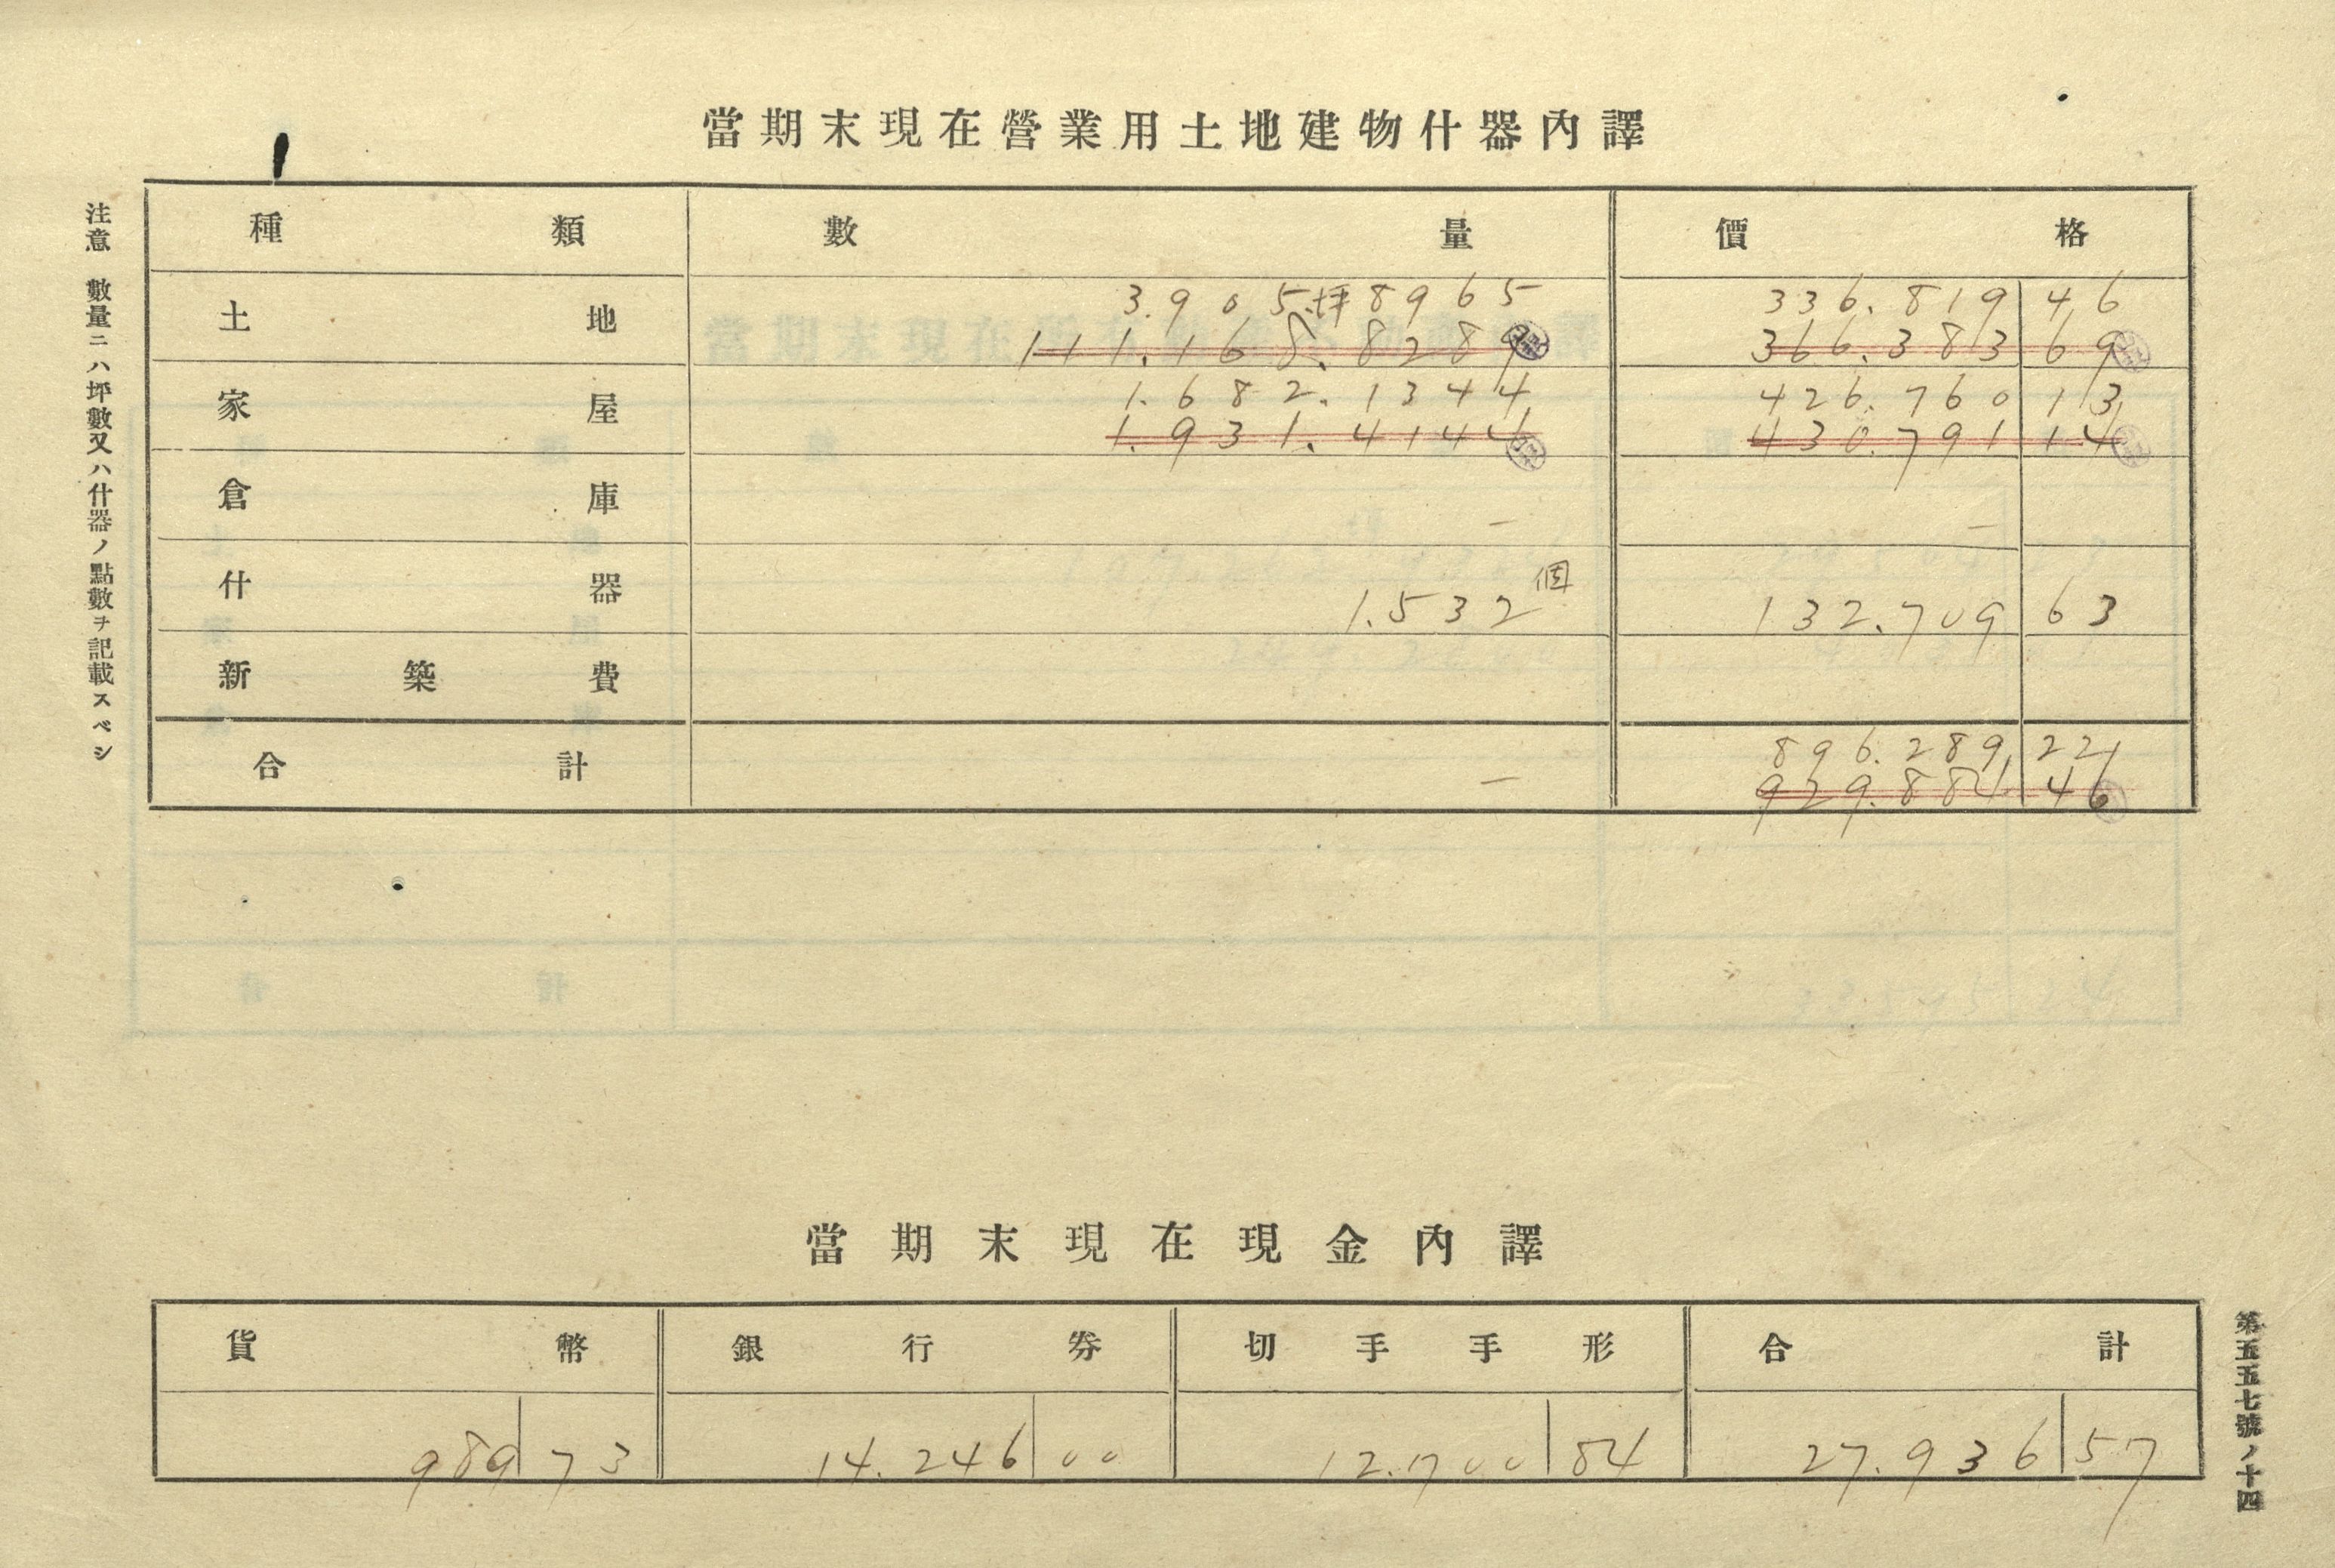 當期末現在營業用土地建物什器內譯
種類 數量 價格
土地 3.905.坪8965 336.819 46
111.168.8289 366.383 69
家屋 1.682.1344 426.760 13
1.931.4144 430.791 14
倉庫 — —
什器 1.532個 132.709 63
新築費
合計 — 896.289 22
929.884 46
注意 數量ニハ坪數又ハ什器ノ點數ヲ記載スベシ
當期末現在現金內譯
貨幣 銀行券 切手手形 合計
989 73 14.246 00 12.700 84 27.936 57
第五五七號ノ十四